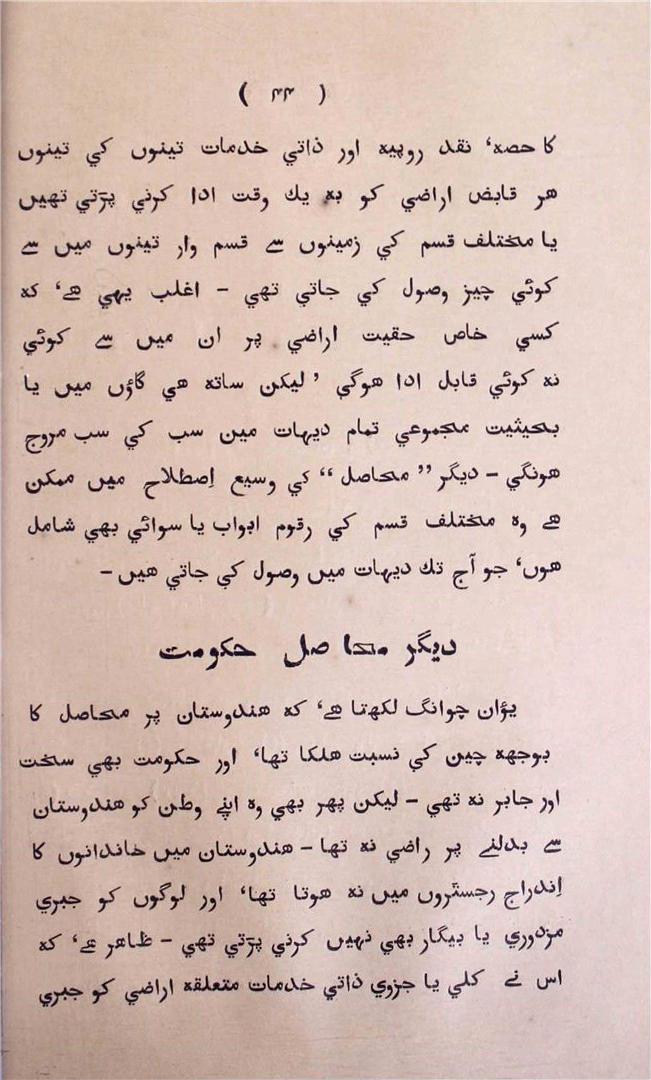 ( ۴۴ )
کا حصہ، نقد روپیہ اور ذاتي خدمات تینوں کي تینوں
ھر قابض اراضي کو بہ یك وقت ادا کرني پڑتي تھیں
یا مختلف قسم کي زمینوں سے قسم وار تینوں میں سے
کوئي چیز وصول کي جاتي تھي - اغلب یہي ھے، کہ
کسي خاص حقیت اراضي پر ان میں سے کوئي
نہ کوئي قابل ادا ھوگي، لیکن ساتھ ھي گاؤں میں یا
بحیثیت مجموعي تمام دیہات میں سب کي سب مروج
ھونگي - دیگر ”محاصل“ کي وسیع اِصطلاح میں ممکن
ھے وہ مختلف قسم کي رقوم ابواب یا سوائي بھي شامل
ھوں، جو آج تك دیہات میں وصول کي جاتي ھیں -
دیگر محاصل حکومت
یؤان چوانگ لکھتا ھے، کہ ھندوستان پر محاصل کا
بوجھہ چین کي نسبت ھلکا تھا، اور حکومت بھي سخت
اور جابر نہ تھي - لیکن پھر بھي وہ اپنے وطن کو ھندوستان
سے بدلنے پر راضي نہ تھا - ھندوستان میں خاندانوں کا
اِندراج رجسٹروں میں نہ ھوتا تھا، اور لوگوں کو جبري
مزدوري یا بیگار بھي نہیں کرني پڑتي تھي - ظاھر ھے، کہ
اس نے کلي یا جزوي ذاتي خدمات متعلقہ اراضي کو جبري